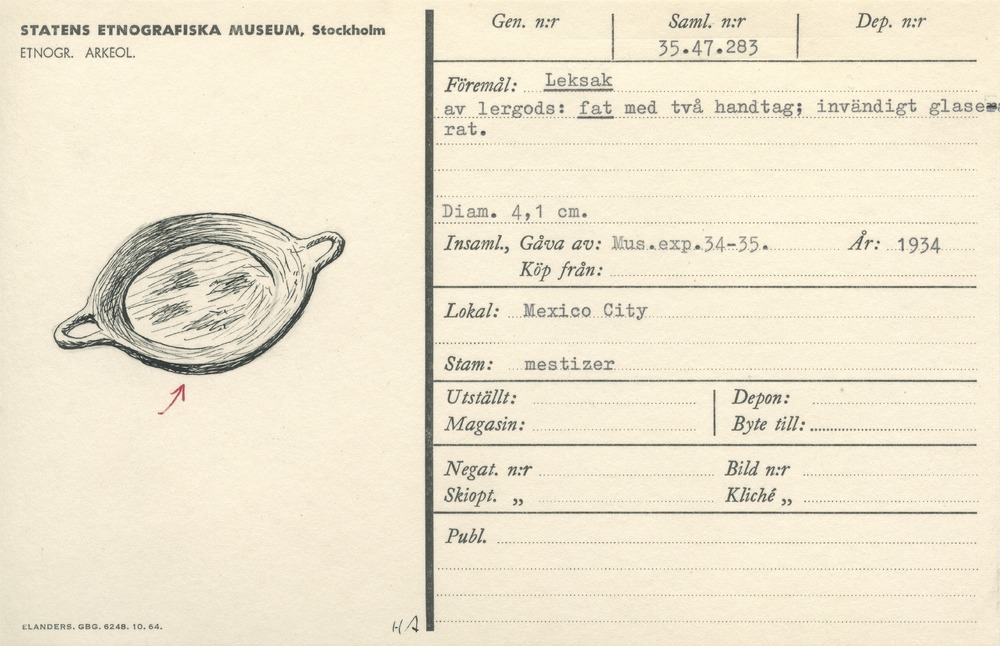 STATENS ETNOGRAFISKA MUSEUM, Stockholm
ETNOGR. ARKEOL.
Gen. n:r
Saml. n:r
Dep. n:r
35.47.283
Föremål: Leksak
av lergods: fat med två handtag; invändigt glase-
rat.
Diam. 4,1 cm.
Insaml., Gåva av: Mus.exp.34-35. År: 1934
Köp från:
Lokal: Mexico City
Stam: mestizer
Utställt: Depon:
Magasin: Byte till:
Negat. n:r Bild n:r
Skiopt. „ Kliché „
Publ.
ELANDERS. GBG. 6248. 10. 64.
HA